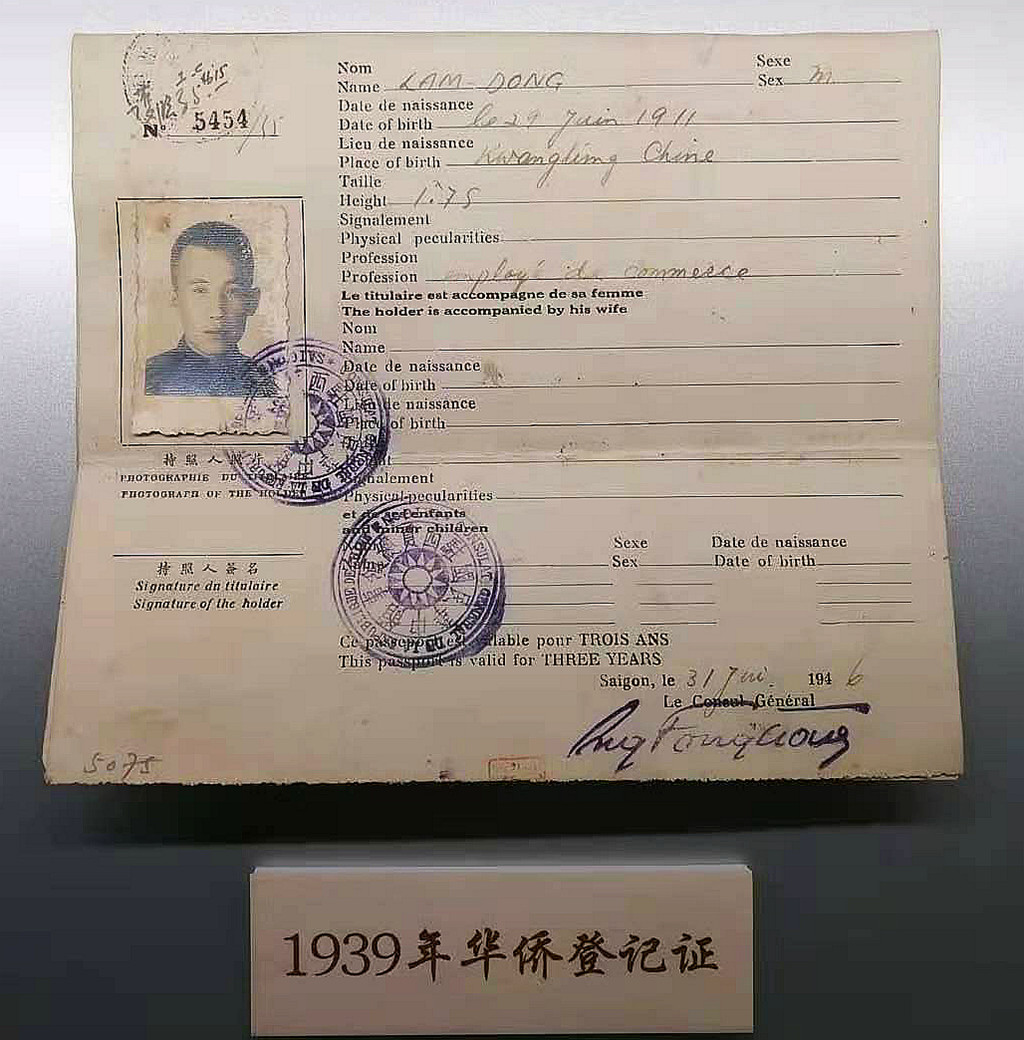 Nº 5454
Nom
Name LAM-DONG
Sexe
Sex m
Date de naissance
Date of birth le 29 Juin 1911
Lieu de naissance
Place of birth Chine
Taille
Height 1.75
Signalement
Physical pecularities
Profession
Profession employé de commerce
Le titulaire est accompagne de sa femme
The holder is accompanied by his wife
Nom
Name
Date de naissance
Date of birth
Lieu de naissance
Place of birth
Signalement
Physical pecularities
et de ses enfants
and minor children
Sexe Date de naissance
Sex Date of birth
Ce passeport est valable pour TROIS ANS
This passport is valid for THREE YEARS
Saigon, le 31 1946
Le Consul Général
持照人照片
PHOTOGRAPHIE DU
PHOTOGRAPH OF THE HOLDER
持照人签名
Signature du titulaire
Signature of the holder
5075
1939年华侨登记证